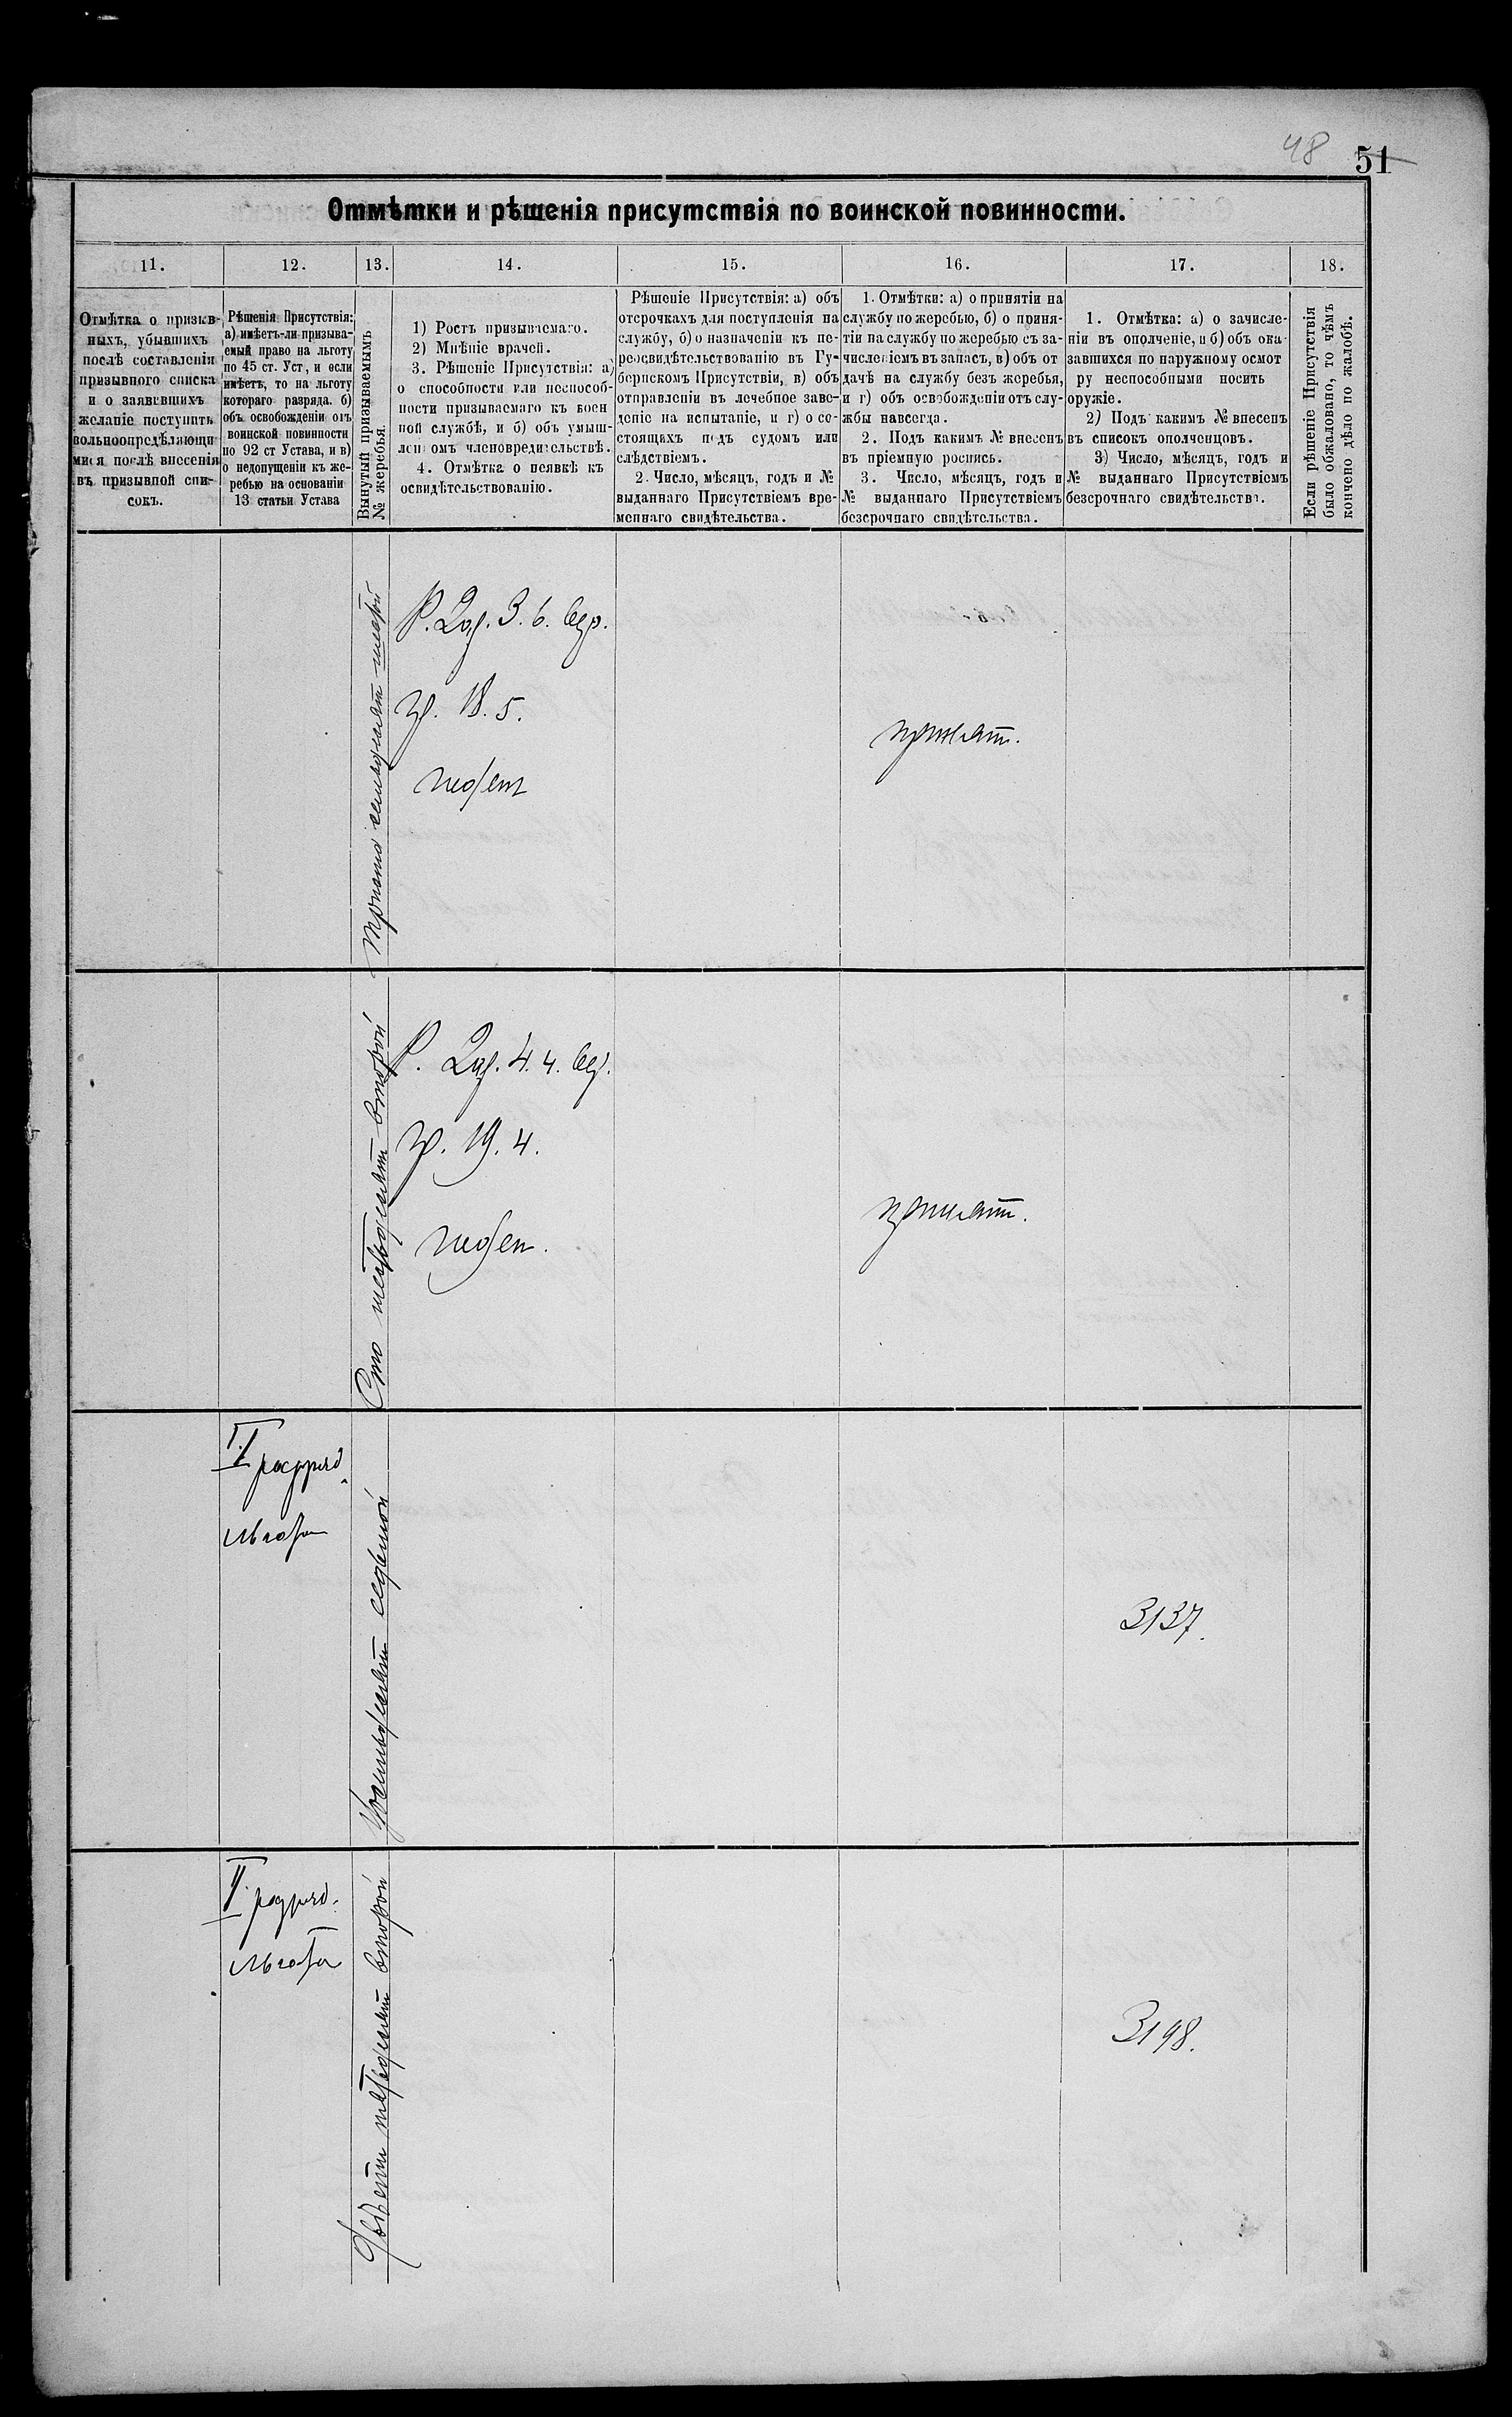 48 51
Отмѣтки и рѣшенія присутствія по воинской повинности.
11. 12. 13. 14. 15. 16. 17. 18.
Отмѣтка о призыв-
ныхъ, убывшихъ
послѣ составленія
призывного списка
и о заявившихъ
желаніе поступить
вольноопредѣляющи
мися послѣ внесенія
въ призывной спи-
сокъ.
Рѣшенія Присутствія:
а) имѣетъ-ли призыва-
емый право на льготу
по 45 ст. Уст, и если
имѣетъ, то на льготу
котораго разряда. б)
объ освобожденіи отъ
воинской повинности
по 92 ст Устава, и в)
о недопущеніи къ же-
ребью на основаніи
13 статьи Устава
Вынутый призываемымъ
№ жеребья.
1) Ростъ призываемаго.
2) Мнѣніе врачей.
3. Рѣшеніе Присутствія: а)
о способности или неспособ-
ности призываемаго къ воен
ной службѣ, и б) объ умыш-
лен омъ членовредительствѣ.
4. Отмѣтка о неявкѣ къ
освидѣтельствованію.
Рѣшеніе Присутствія: а) объ
отсрочкахъ для поступленія на
службу, б) о назначеніи къ пе-
реосвидѣтельствованію въ Гу-
бернскомъ Присутствіи, в) объ
отправленіи въ лечебное заве-
деніе на испытаніе, и г) о со-
стоящихъ подъ судомъ или
слѣдствіемъ.
2. Число, мѣсяцъ, годъ и №
выданнаго Присутствіемъ вре-
меннаго свидѣтельства.
1. Отмѣтки: а) о принятіи на
службу по жеребью, б) о приня-
тіи на службу по жеребью съ за-
численіемъ въ запасъ, в) объ от
дачѣ на службу безъ жеребья,
и г) объ освобожденіи отъ слу-
жбы навсегда.
2. Подъ какимъ № внесенъ
въ пріемную роспись.
3. Число, мѣсяцъ, годъ и
№ выданнаго Присутствіемъ
безсрочнаго свидѣтельства.
1. Отмѣтка: а) о зачисле-
ніи въ ополченіе, и б) объ ока-
завшихся по наружному осмот
ру неспособными носить
оружіе.
2) Подъ какимъ № внесенъ
въ списокъ ополченцовъ.
3) Число, мѣсяцъ, годъ и
№ выданнаго Присутствіемъ
безсрочнаго свидѣтельства.
Если рѣшеніе Присутствія
было обжаловано, то чѣмъ
кончено дѣло по жалобѣ.
Триста семьдесят шестой
Р. 2 ар. 3. 6. вер.
гр. 18. 5.
годен
принят.
Сто шестьдесят второй
Р. 2 ар. 4. 4. вер.
гр. 19. 4.
годен.
принят.
I разряд
льгота
Восемьдесят седьмой
3137.
II разряд.
льгота
Двести шестьдесят второй
3198.